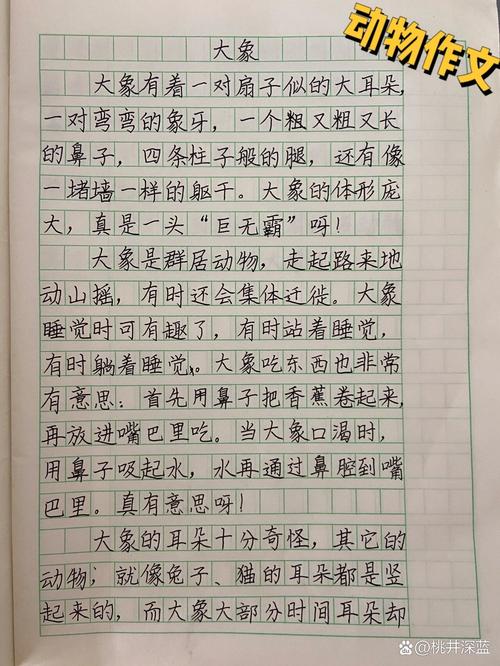 动物作文
大象
大象有着一对扇子似的大耳朵,
一对弯弯的象牙，一个粗又粗又长
的鼻子，四条柱子般的腿，还有像
一堵墙一样的躯干。大象的体形庞
大，真是一头“巨无霸”呀！
大象是群居动物，走起路来地
动山摇，有时还会集体迁徙。大象
睡觉时可有趣了，有时站着睡觉,
有时躺着睡觉。大象吃东西也非常
有意思：首先用鼻子把香蕉卷起来,
再放进嘴巴里吃。当大象口渴时,
用鼻子吸起水，水再通过鼻腔到嘴
巴里。真有意思呀！
大象的耳朵十分奇怪，其它的
动物；就像兔子、猫的耳朵都是竖
起来的，而大象大部分时间耳朵却
@桃井深蓝